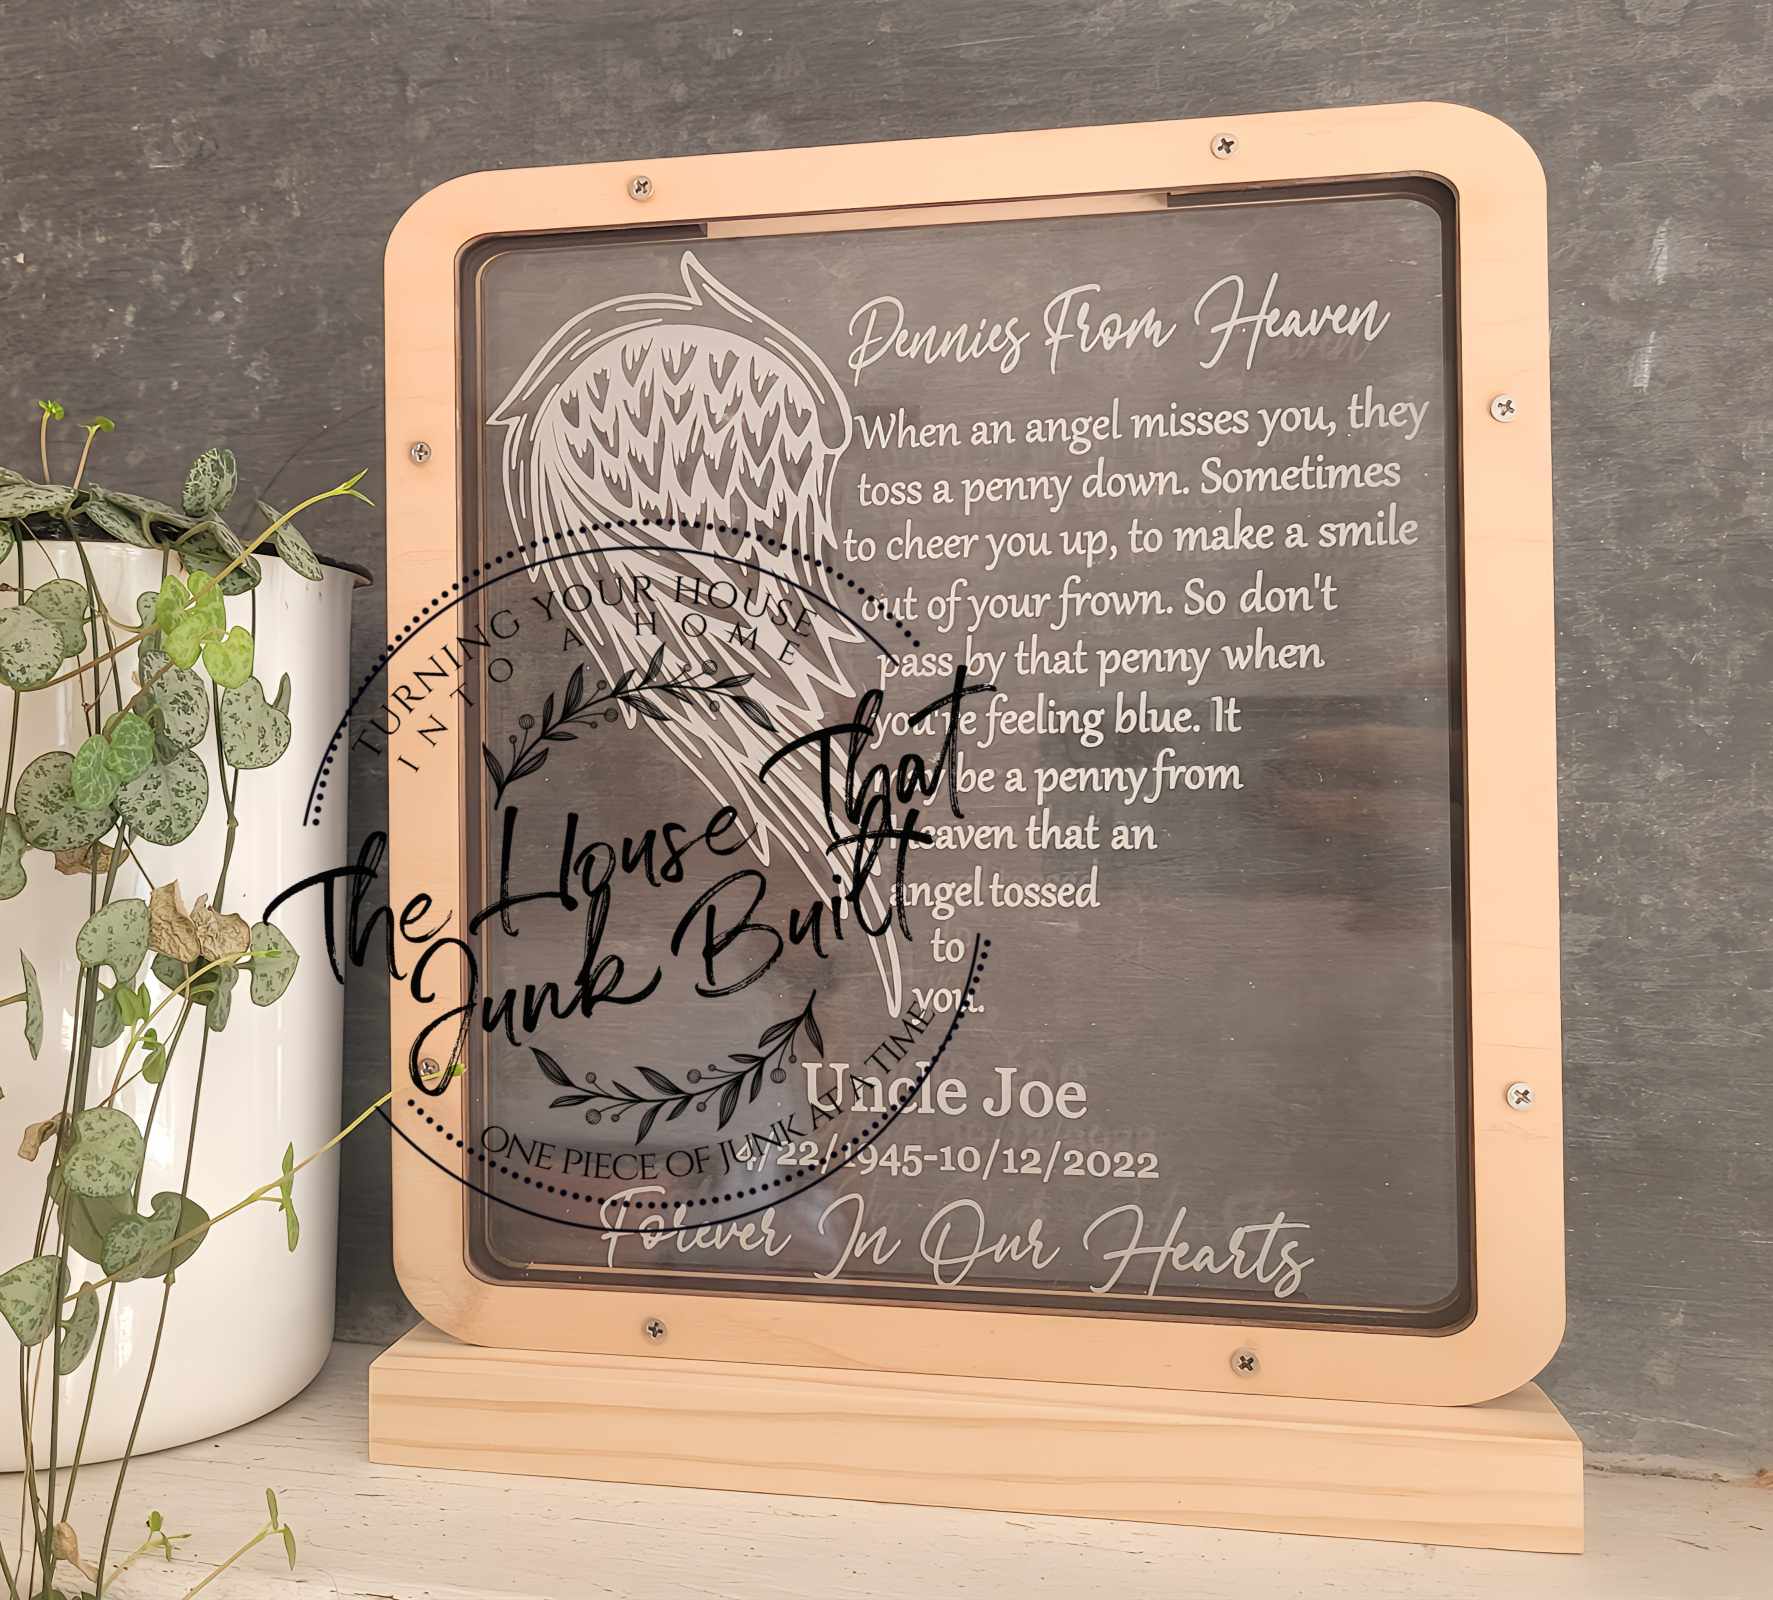 Pennies From Heaven
When an angel misses you, they
toss a penny down. Sometimes
to cheer you up, to make a smile
out of your frown. So don't
pass by that penny when
you're feeling blue. It
may be a penny from
Heaven that an
angel tossed
to
you.
Uncle Joe
4/22/1945-10/12/2022
Forever In Our Hearts
TURNING YOUR HOUSE
INTO A HOME
The House That
Junk Built
ONE PIECE OF JUNK AT A TIME